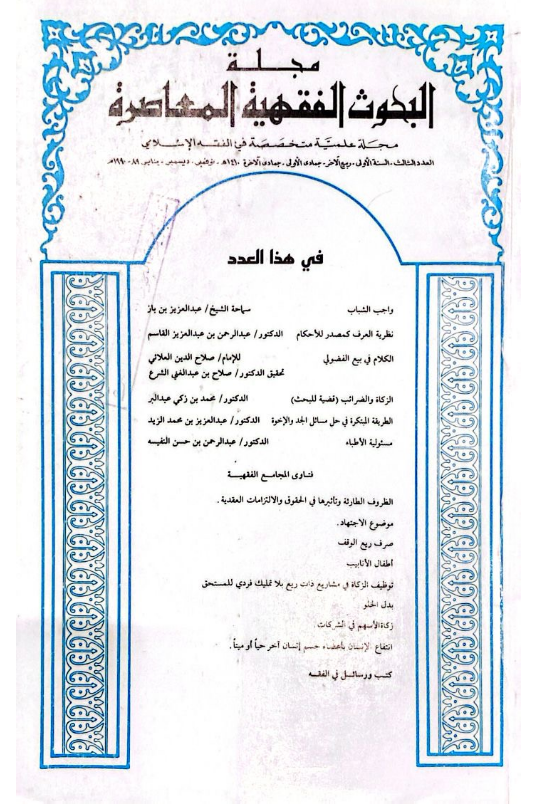 مجلة
البحوث الفقهية المعاصرة
مجلة علمية متخصصة في الفقه الإسلامي
العدد الثالث ـ السنة الأولى ـ ربيع الآخر ـ جمادى الأولى ـ جمادى الآخرة ١٤١٠هـ ـ نوفمبر ـ ديسمبر ـ يناير ٨٩ ـ ١٩٩٠م
في هذا العدد
واجب الشباب سماحة الشيخ/ عبدالعزيز بن باز
نظرية العرف كمصدر للأحكام الدكتور/ عبدالرحمن بن عبدالعزيز القاسم
الكلام في بيع الفضولي للإمام/ صلاح الدين العلائي
تحقيق الدكتور/ صلاح بن عبدالغني الشرع
الزكاة والضرائب (قضية للبحث) الدكتور/ محمد بن زكي عبدالبر
الطريقة المبتكرة في حل مسائل الجد والإخوة الدكتور/ عبدالعزيز بن محمد الزيد
مسئولية الأطباء الدكتور/ عبدالرحمن بن حسن النفيسه
فتاوى المجامع الفقهية
الظروف الطارئة وتأثيرها في الحقوق والالتزامات العقدية .
موضوع الاجتهاد .
صرف ريع الوقف
أطفال الأنابيب
توظيف الزكاة في مشاريع ذات ريع بلا تمليك فردي للمستحق
بدل الخلو
زكاة الأسهم في الشركات
انتفاع الإنسان بأعضاء جسم إنسان آخر حياً أو ميتاً .
كتب ورسائل في الفقه